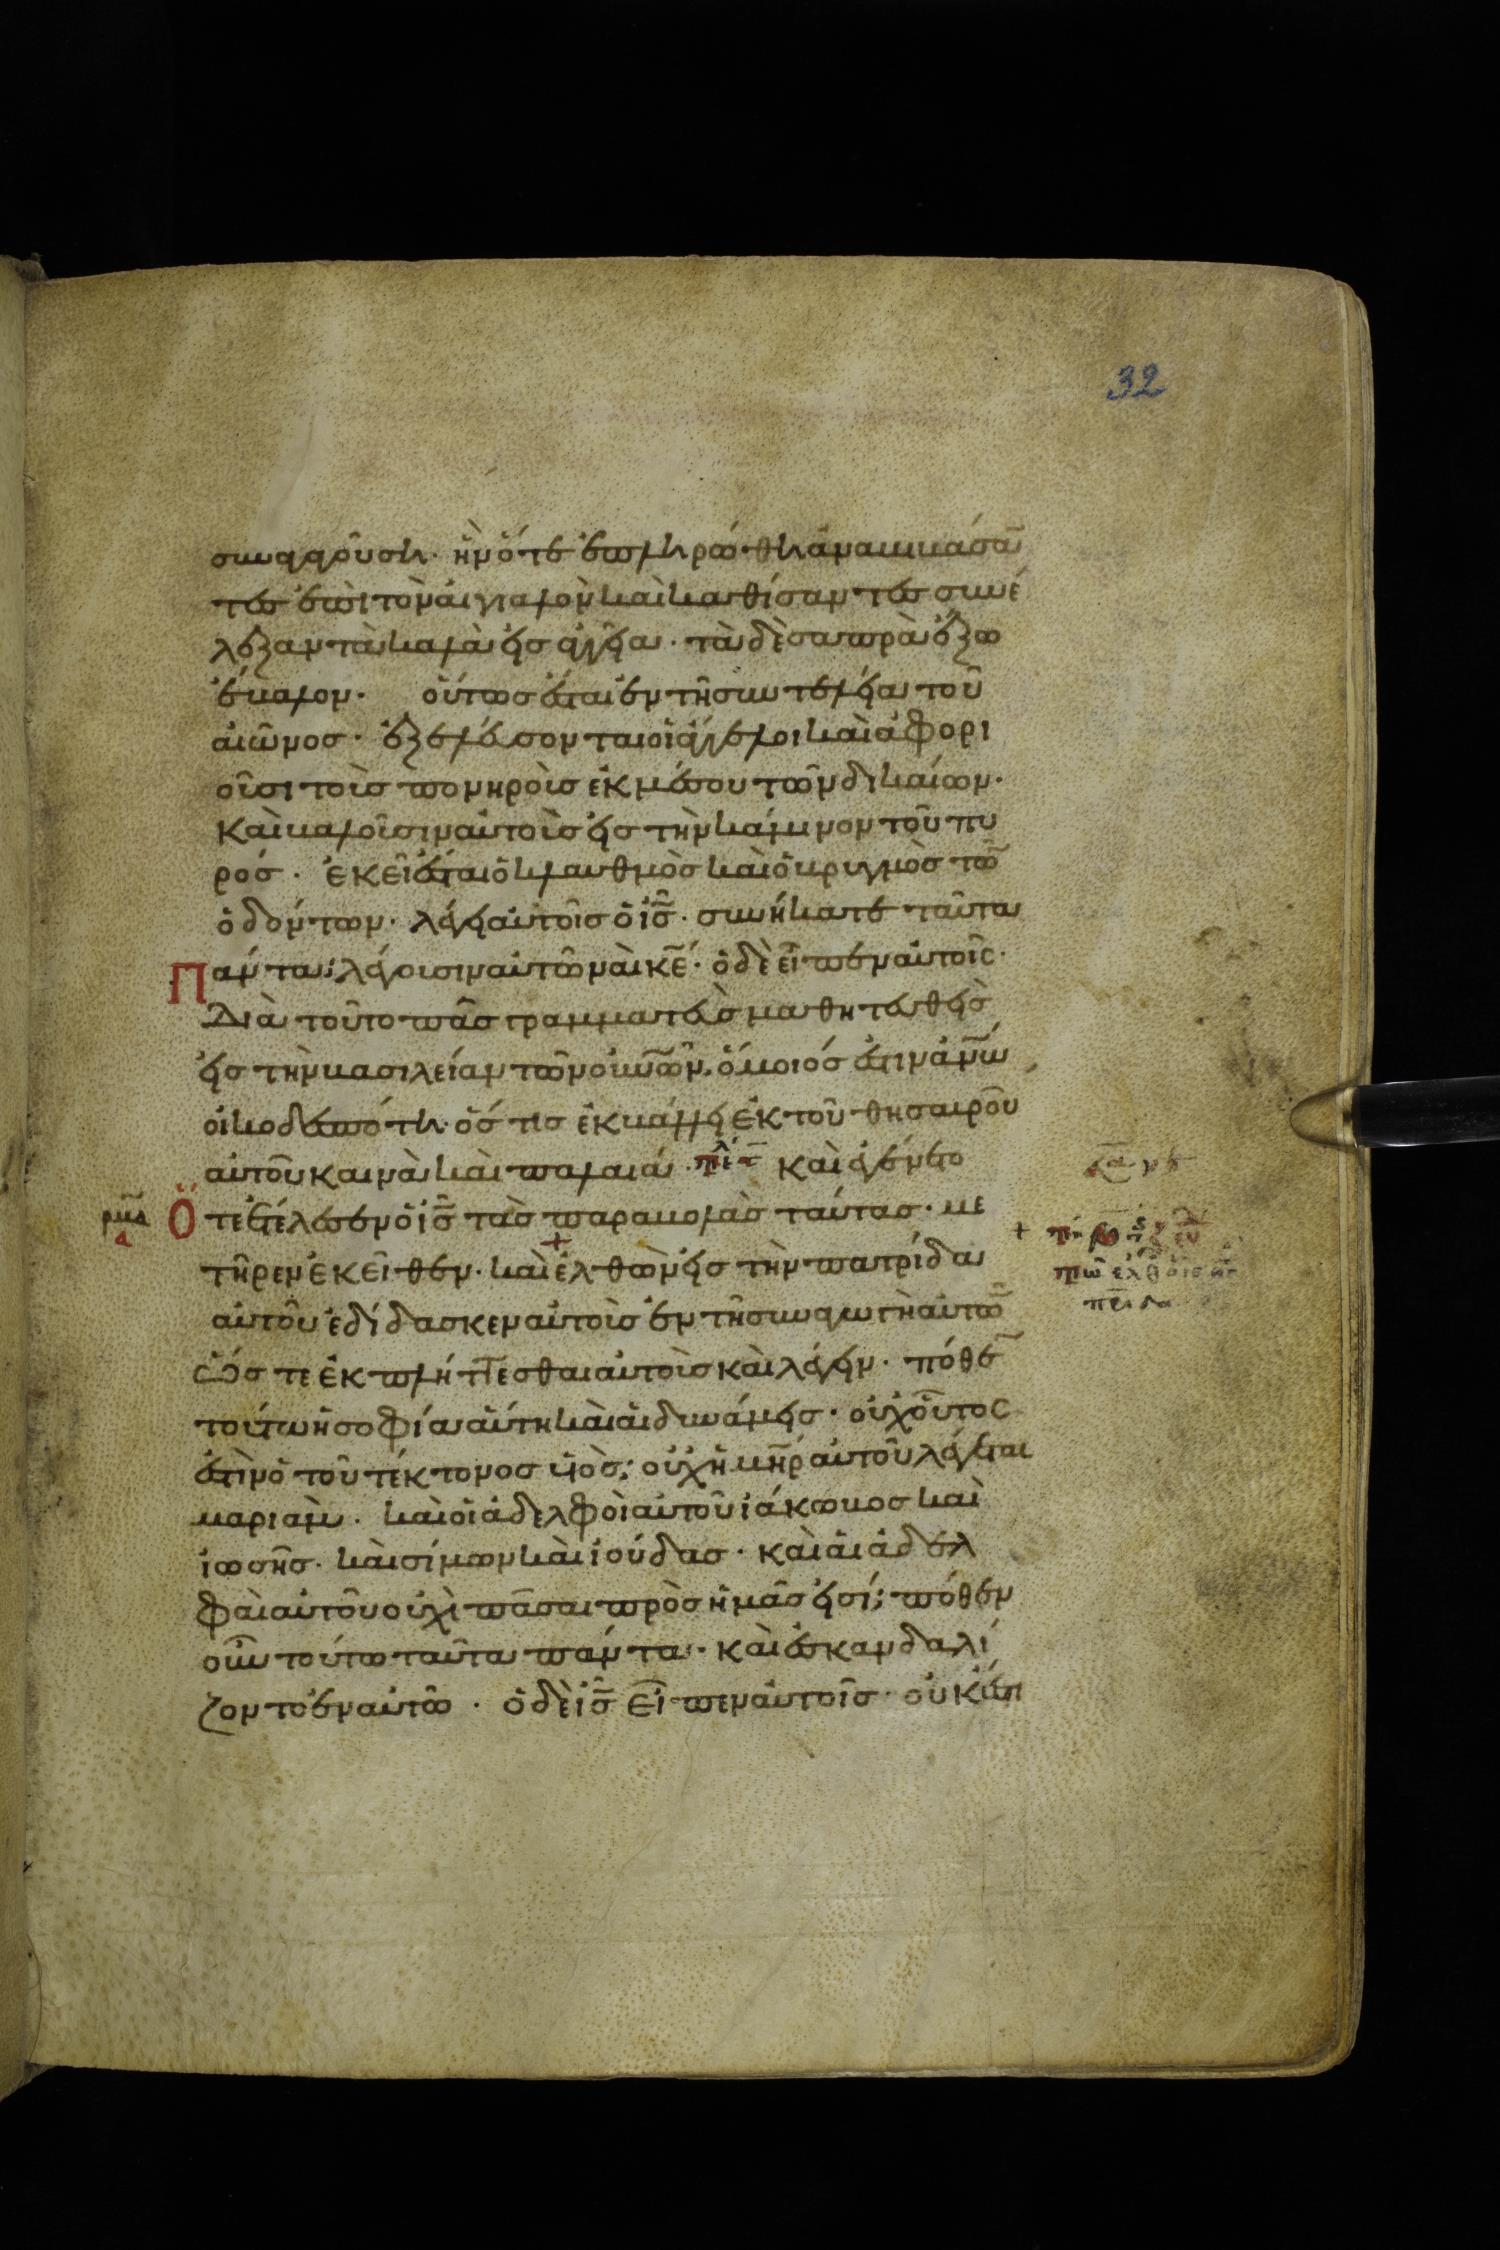 32
συναγαγοῦσιν· ἣν ὅτε ἐπληρώθη ἀναβιβάσαν
τες ἐπὶ τὸν αἰγιαλὸν καὶ καθίσαντες συνέ
λεξαν τὰ καλὰ εἰς ἀγγεῖα· τὰ δὲ σαπρὰ ἔξω
ἔβαλον· οὕτως ἔσται ἐν τῆ συντελεία τοῦ
αἰῶνος· ἐξελεύσονται οἱ ἄγγελοι καὶ ἀφορι
οῦσι τοὺς πονηροὺς ἐκ μέσου τῶν δικαίων·
Καὶ βαλοῦσιν αὐτοὺς εἰς τὴν κάμινον τοῦ πυ
ρός· ἐκεῖ ἔσται ὁ κλαυθμὸς καὶ ὁ βρυγμὸς τῶν
ὀδόντων· λέγει αὐτοῖς ὁ ις· συνήκατε ταῦτα
Πάντα; λέγουσιν αὐτῶ ναὶ κε· ὁ δὲ εἶπεν αὐτοῖς·
Διὰ τοῦτο πᾶς γραμματεὺς μαθητευθεὶς
εἰς τὴν βασιλείαν τῶν οὐνῶν, ὅμοιός ἐστιν ἀνῶ
οἰκοδεσπότη· ὅστις ἐκβάλλει ἐκ τοῦ θησαυροῦ
αὐτοῦ καινὰ καὶ παλαιά· καὶ ἐγένετο
Ὅτε ἐτέλεσεν ὁ ις τὰς παραβολὰς ταύτας· με
τῆρεν ἐκεῖθεν· καὶ ἐλθὼν εἰς τὴν πατρίδα
αὐτοῦ ἐδίδασκεν αὐτοὺς ἐν τῆ συναγωγῆ αὐτῶν
Ὥστε ἐκπλήττεσθαι αὐτοὺς καὶ λέγειν· πόθεν
τούτω ἡ σοφία αὕτη καὶ αἱ δυνάμεις· οὐχ οὗτος
ἐστὶν ὁ τοῦ τέκτονος υἱὸς; οὐχὶ ἡ μηρ αὐτοῦ λέγεται
μαριὰμ· καὶ οἱ ἀδελφοὶ αὐτοῦ ἰάκωβος καὶ
ἰωσῆς· καὶ σίμων καὶ ἰούδας· καὶ αἱ ἀδελ
φαὶ αὐτοῦ οὐχὶ πᾶσαι πρὸς ἡμᾶς εἰσί; πόθεν
οὖν τούτω ταῦτα πάντα· καὶ ἐσκανδαλί
ζοντο ἐν αὐτῶ· ὁ δὲ ις εἶπεν αὐτοῖς· οὐκ ἔστι